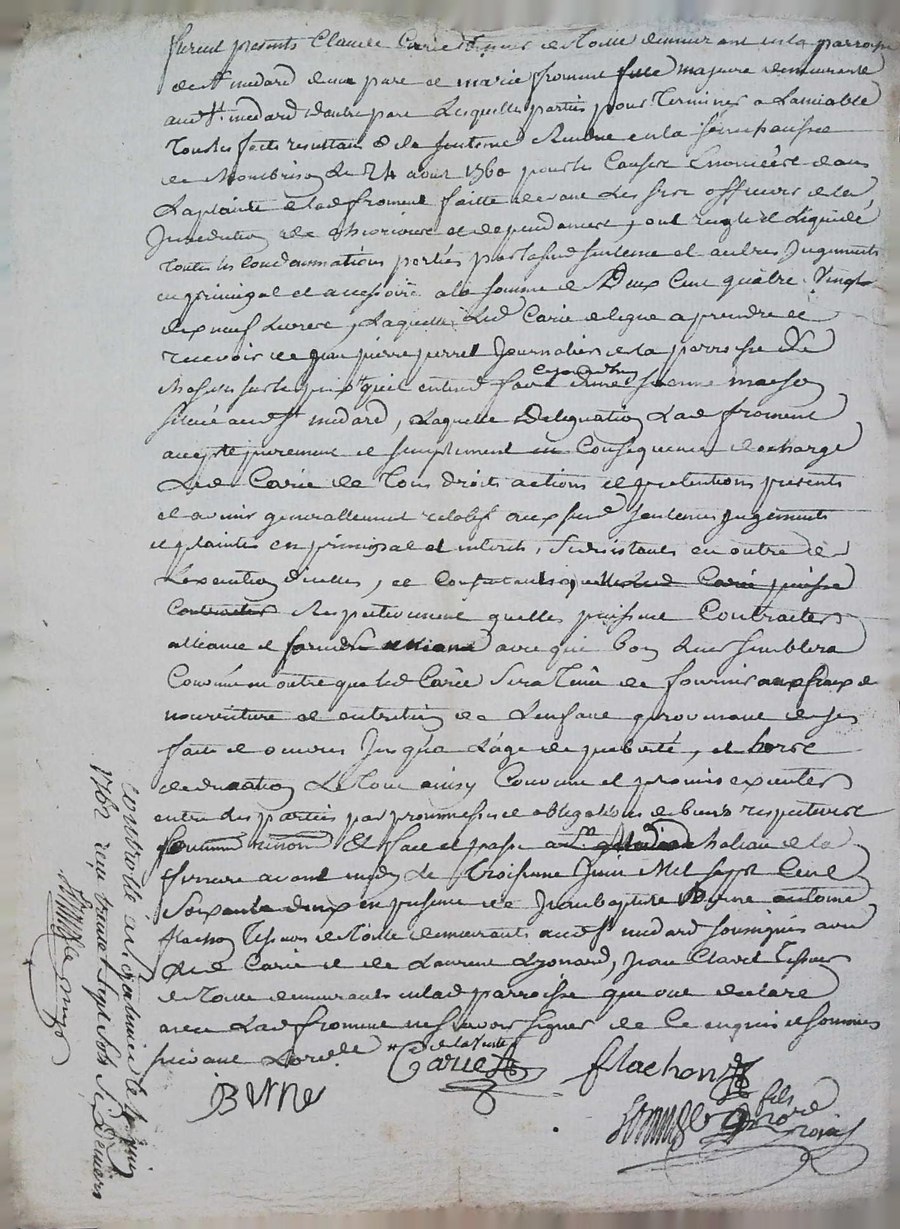 furent presents Claude Carie tisseur de toille demeurant en la parroisse
de St medard d'une part et marie froment fille majeure demeurante
aud St medard d'autre part Lesquelles parties pour terminer a L'amiable
tous les faits resultans de la sentence Rendue en la
de Montbrison Le 24 aout 1760 pour les Causes Enoncées dans
La plainte de lad froment faitte devant Les sieurs officiers de la
Jurisdiction de et dependances, ont reglé et Liquidé
toutes les Condamnations portées par lasusd sentence et autres Jugements
en principal et accessoire a la somme de Deux Cent quatre Vingt
dix neuf Livres, Laquelle Led Carie delegue a prendre et
recevoir de Jean pierre perret Journalier de la parroisse de
sur le prix qu'il entend faire cejourdhuy d'une sienne maison
située aud St medard, Laquelle Delegation Lad froment
accepte purement et simplement en Consequence decharge
Led Carie de tous droits actions et pretentions presents
et avenir generallement relatif aux susd sentences Jugements
et plaintes en principal et interets, se desistants en outre de
L'execution d'icelles, et Consentants que led Carie puisse
Contracter Respectivement quelles puissent Contracter
alliance et avec que bon Leur semblera
Convenu en outre que led Carie sera tenu de fournir aux frais de
nourriture et entretien de L'enfant provenant de ses
faits et oeuvres Jusqu'a L'age de puberté, et hors
de Le tout ainsy Convenu et promis executer
entre les parties par promesses et obligations de biens respectives
Et fait et passé au hateau de la
avant midy Le troisieme Juin Mil sept Cent
soixante deux en presence de Jean baptiste Byrne antoine
flachon tisseurs de toille demeurants aud St medard soussignés avec
Led Carie et de Laurent Lyonard, Jean Claret tisseur
de toille demeurants en lad parroisse qui ont declaré
avec Lad froment ne scavoir signer de Ce enquis et sommés
suivant L'ord
Carie
flachon
Byrne
fils
Controllé a le Juin
1762 reçu trente sept sols six deniers